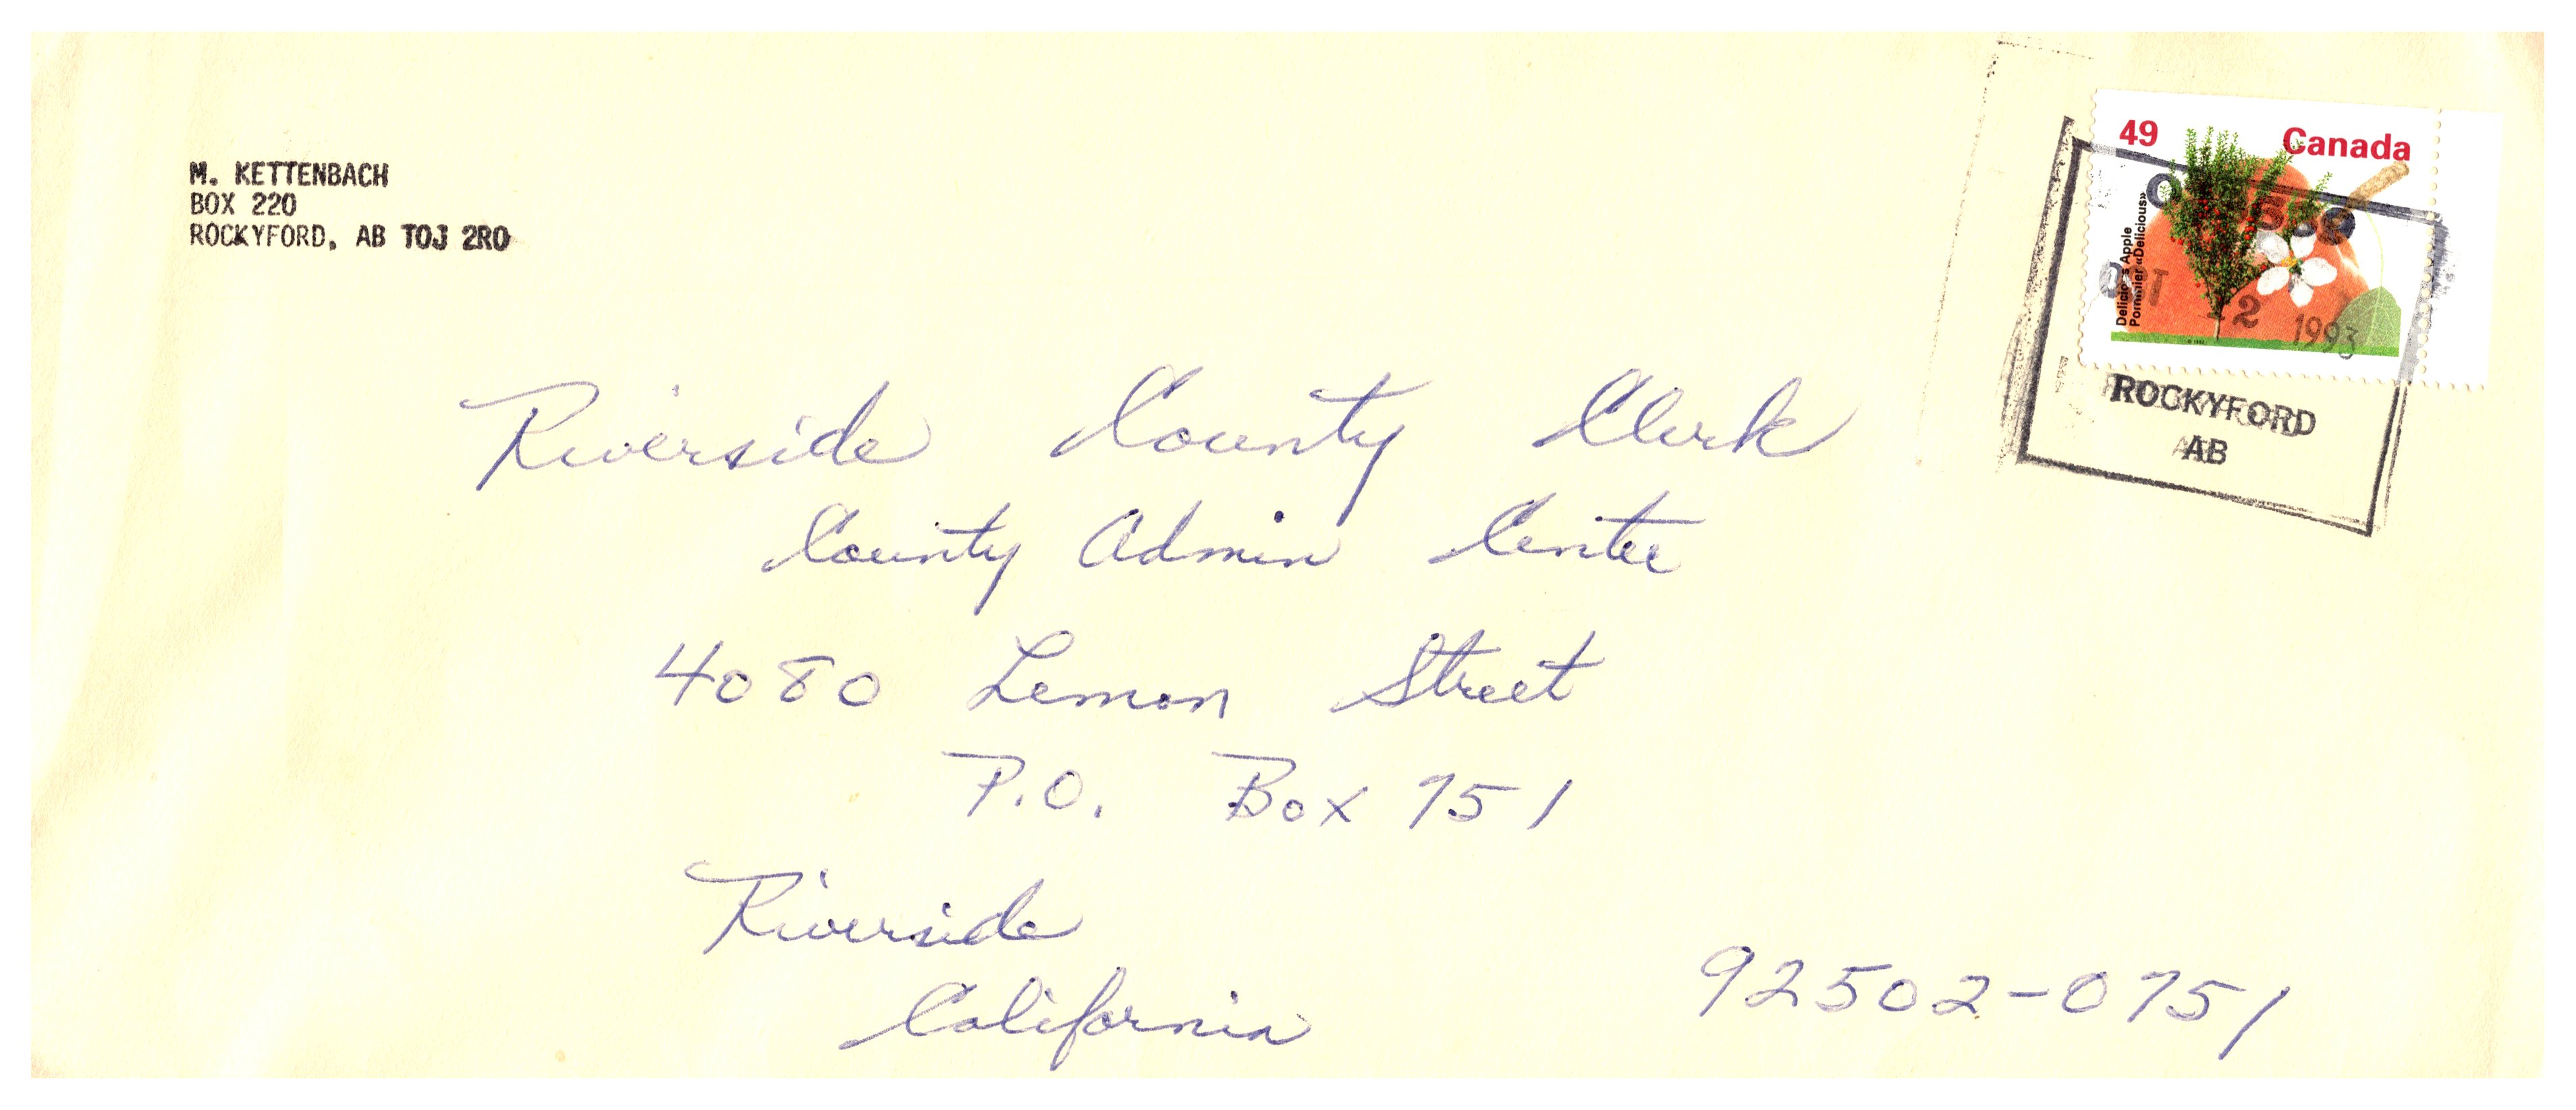 M. KETTENBACH
BOX 220
ROCKYFORD, AB TOJ 2RO
49 Canada
Delicious Apple
Pommier «Delicious»
OCT 12 1993
ROCKYFORD
AB
Riverside County Clerk
County Admin Center
4080 Lemon Street
P.O. Box 751
Riverside
California 92502-0751